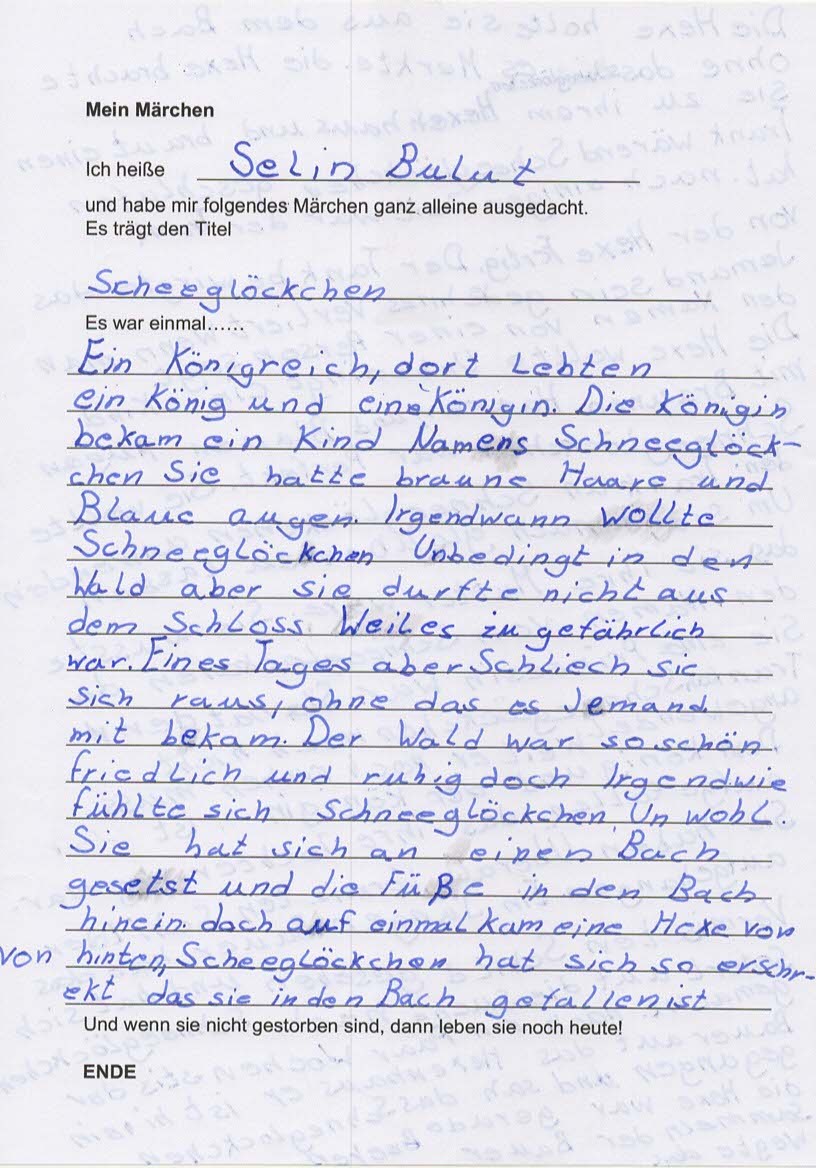 Mein Märchen
Ich heiße Selin Bulut
und habe mir folgendes Märchen ganz alleine ausgedacht.
Es trägt den Titel
Scheeglöckchen
Es war einmal......
Ein Königreich, dort Lebten
ein König und eine Königin. Die Königin
bekam ein Kind Namens Schneeglöck-
chen Sie hatte braune Haare und
Blaue augen. Irgendwann wollte
Schneeglöckchen Unbedingt in den
Wald aber sie durfte nicht aus
dem Schloss Weil es zu gefährlich
war. Eines Tages aber Schliech sie
sich raus, ohne das es Jemand
mit bekam. Der Wald war so schön
friedlich und ruhig doch Irgendwie
fühlte sich Schneeglöckchen Un wohl.
Sie hat sich an einen Bach
gesetst und die Füße in den Bach
hinein. doch auf einmal kam eine Hexe von
von hinten, Scheeglöckchen hat sich so erschr-
ekt das sie in den Bach gefallen ist
Und wenn sie nicht gestorben sind, dann leben sie noch heute!
ENDE